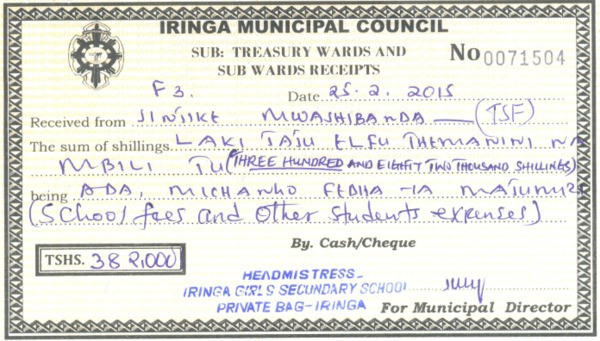 IRINGA MUNICIPAL COUNCIL
SUB: TREASURY WARDS AND
SUB WARDS RECEIPTS
No 0071504
F 3. Date 25.2.2015
Received from SINJIKE MWASHIBANDA (TSF)
The sum of shillings LAKI TATU ELFU THEMANINI NA
MBILI TU (THREE HUNDRED AND EIGHTY TWO THOUSAND SHILLINGS)
being ADA, MICHANHO FEDHA YA MATUMIZI
(School fees and other students expenses)
By. Cash/Cheque
TSHS. 382,000
HEADMISTRESS
IRINGA GIRLS SECUNDARY SCHOOL
PRIVATE BAG-IRINGA
For Municipal Director